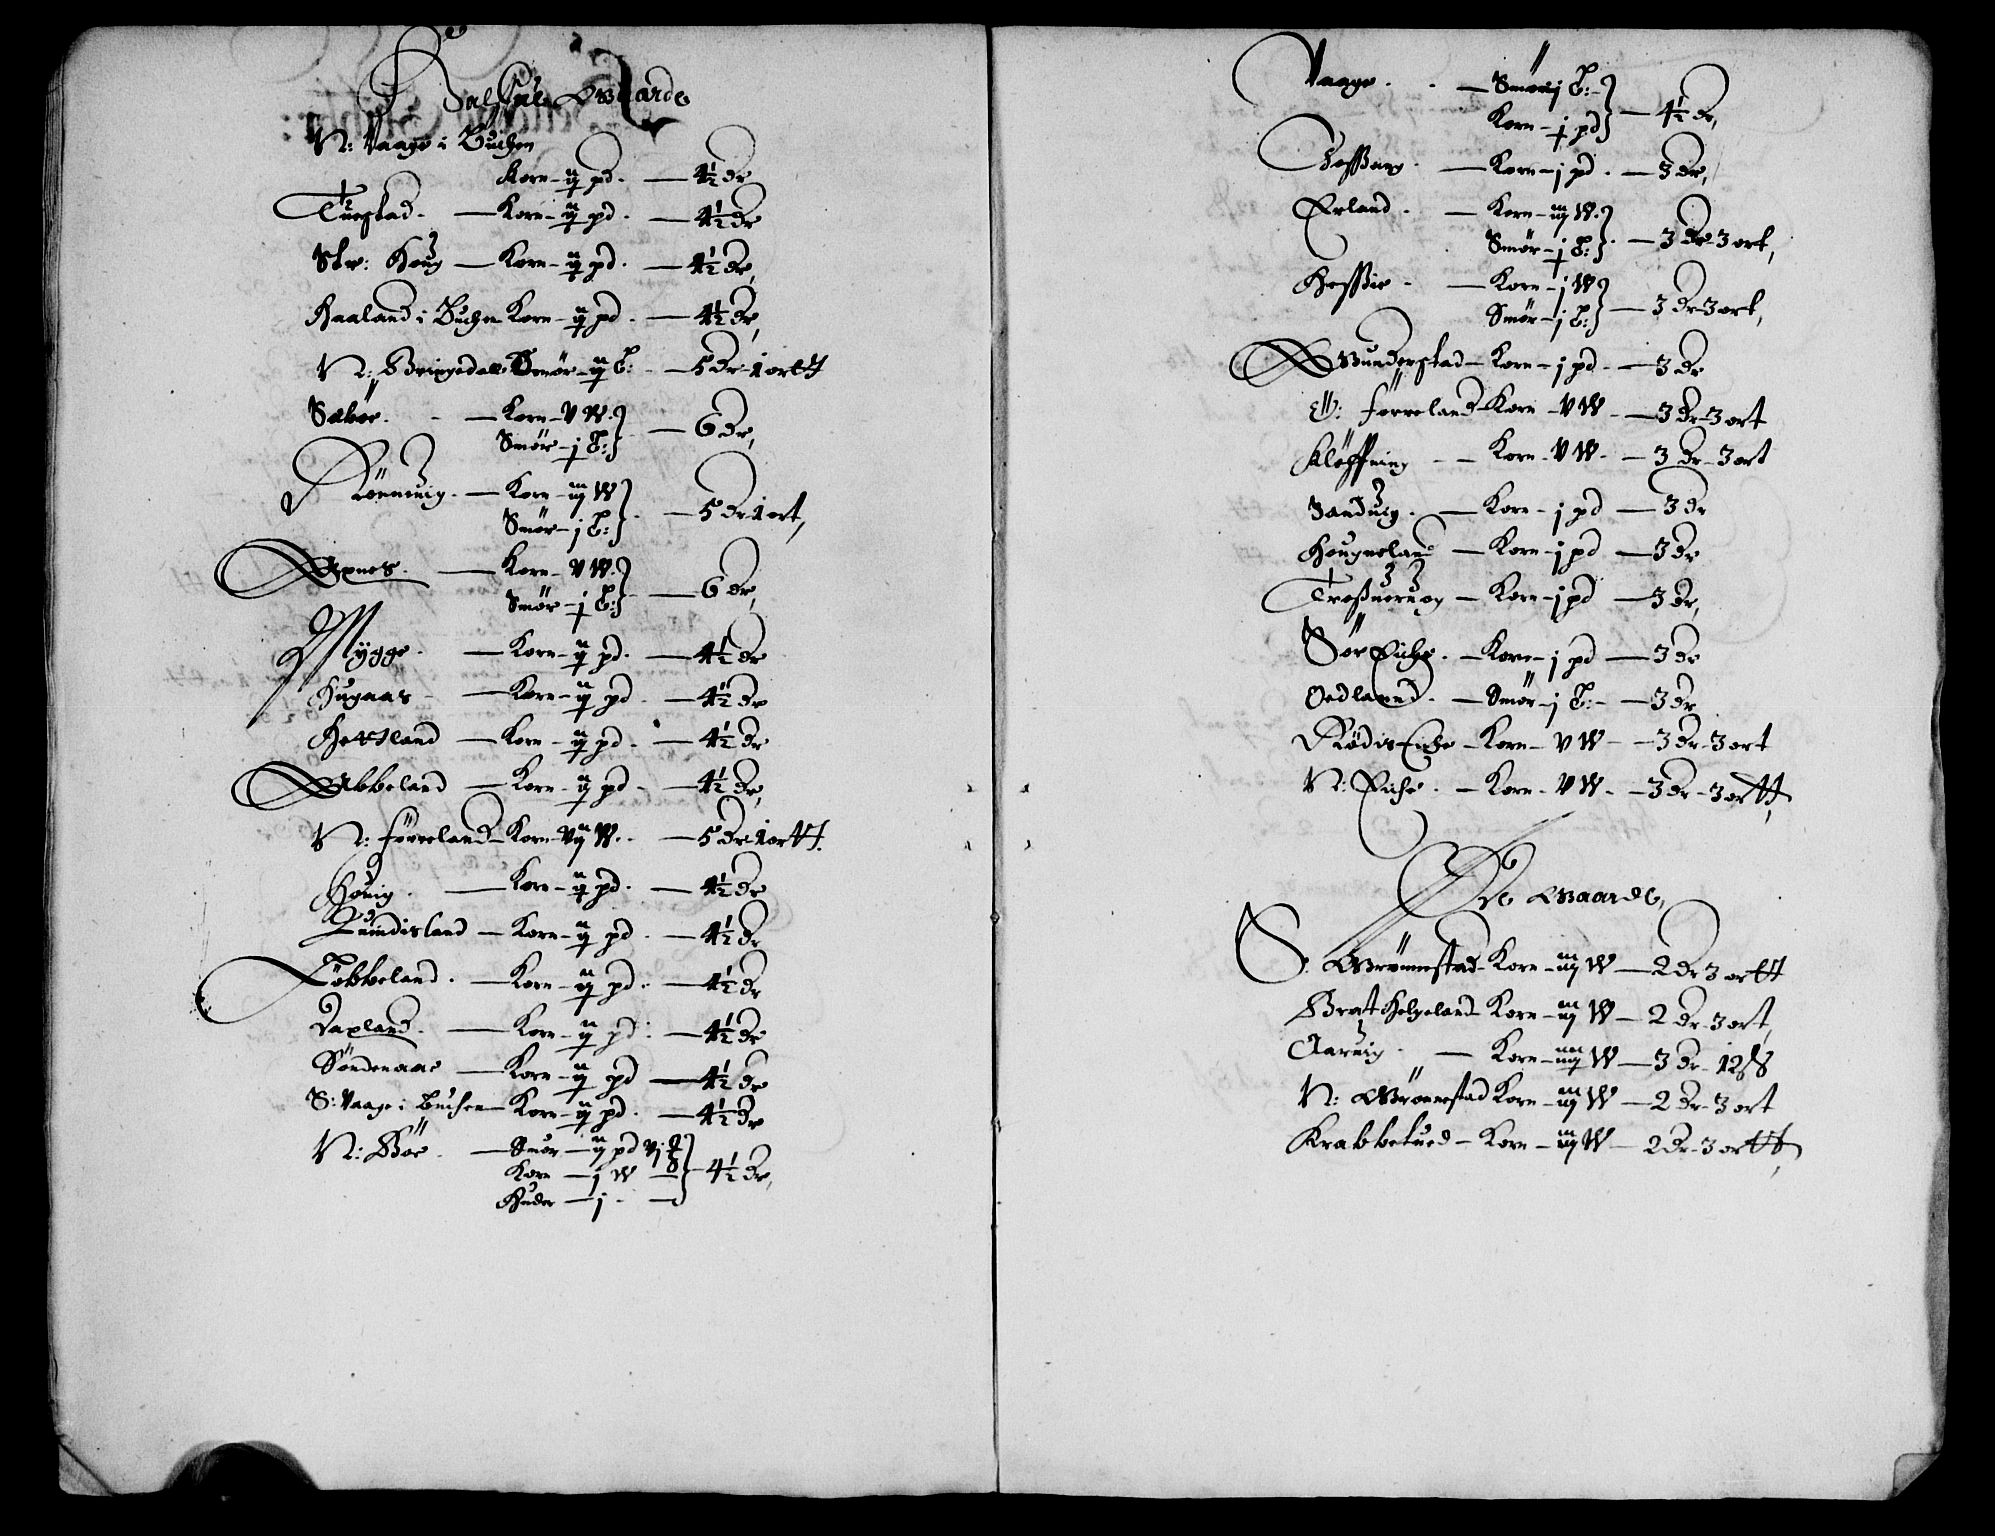 Half Guld Gaarde
N: Vaage i Buchen
Korn – ij pd. — 4½ dr
Tuestad. — Korn – ij pd. — 4½ dr
Str: Houg — Korn – ij pd. — 4½ dr,
Haaland i Buchen Korn – ij pd. — 4½ dr,
N: Bringedall Smör – ij t: — 5 dr 1 ortt
Sæbøe. — Korn – V W.
Smör – j t: — 6 dr,
Rönneuig. — Korn – iij W
Smör – j t: — 5 dr 1 ort,
Apnes. — Korn – V W.
Smör – j t: — 6 dr,
Mygge. — Korn – ij pd. — 4½ dr
Hugaas — Korn – ij pd — 4½ dr
Hersland — Korn – ij pd. — 4½ dr
Abbeland — Korn – ij pd — 4½ dr,
N: Förreland – Korn Vij W. — 5 dr 1 ortt.
Houig. — Korn – ij pd. — 4½ dr
Luindisland — Korn – ij pd. — 4½ dr
Többeland. — Korn – ij pd. — 4½ dr
Dapland. — Korn – ij pd. — 4½ dr
Söndenaae — Korn – ij pd — 4½ dr
S: Vaage i Buchen Korn – ij pd. — 4½ dr
N: Böe. — Smör – ij pd Vj
Korn — j W
Huder — j — 4½ dr,
Vaage. — Smör j t:
Korn – j pd — 4½ dr,
— Korn – j pd. — 3 dr,
Erland. — Korn – iij W.
Smör – j t: — 3 dr 3 ort,
— Korn – j W
Smör – j t: — 3 dr 3 ort,
Gunderstad – Korn – j pd. — 3 dr
Förreland – Korn – V W — 3 dr 3 ort
Klöffning — Korn – V W. — 3 dr – 3 ort
Sanduig. — Korn – j pd — 3 dr
Hougneland — Korn – j pd — 3 dr
— Korn – j pd — 3 dr,
Sör Eiche. — Korn – j pd — 3 dr
Oedland. — Smör – j t: — 3 dr
Rödis Eiche – Korn – V W — 3 dr – 3 ort
N: Eiche. — Korn – V W — 3 dr – 3 ortt,
Öde Gaarde,
S: Grönnestad – Korn – iij W — 2 dr 3 ortt
Brat Helgeland Korn – iij W — 2 dr – 3 ort,
Aaruig. — Korn – iiij W — 3 dr – 12 ß
N: Grönnestad Korn – iij W — 2 dr – 3 ort
Krabbetued — Korn – iij W — 2 dr – 3 ortt,